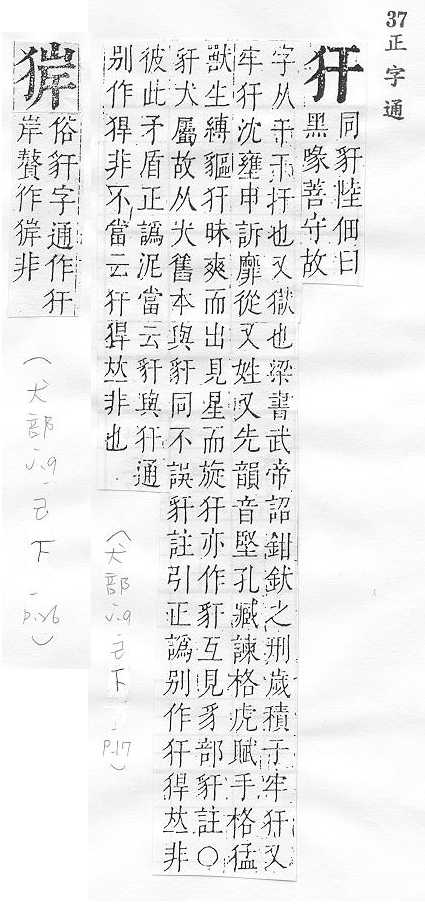 37 正字通
犴
同豻陸佃曰
黑喙善守故
字从干干扞也又獄也梁書武帝詔鉗釱之刑歲積于牢犴又
牢犴沈壅申訴靡從又姓又先韻音堅孔臧諫格虎賦手格猛
獸生縛貙犴昧爽而出見星而旋犴亦作豻互見豸部豻註○
豻犬屬故从犬舊本與豻同不誤豻註引正譌別作犴猂𠀤非
彼此矛盾正譌泥當云豻與犴通
別作猂非不當云犴猂𠀤非也
（犬部 下 p.17）
俗豻字通作犴
岸贅作 非
（犬部 下 p.26）